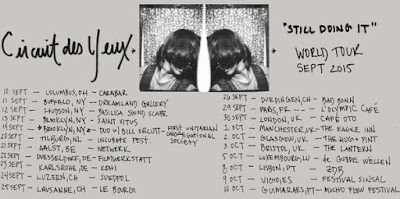 Circuit des Yeux
"STILL DOING IT"
WORLD TOUR
SEPT 2015
10 SEPT — COLUMBUS, OH — CARABAR
11 SEPT — BUFFALO, NY — DREAMLAND GALLERY
12 SEPT — HUDSON, NY — BASILICA SOUND SCAPE
13 SEPT — BROOKLYN, NY — SAINT VITUS
19 SEPT — *BROOKLYN, NY* — DUO W/ BILL ORCUTT — FIRST UNITARIAN CONGREGATIONAL SOCIETY
20 SEPT — TILBURG, NL — INCUBATE FEST.
21 SEPT — AALST, BE — NETWERK
22 SEPT — DUESSELDORF, DE — FILMWERKSTATT
23 SEPT — KARLSRUHE, DE — KOHI
24 SEPT — LUZERN, CH — SUEDPOL
25 SEPT — LAUSANNE, CH — LE BOURG
26 SEPT — DUEDINGEN, CH — BAD BONN
29 SEPT — PARIS, FR — L'OLYMPIC CAFÉ
30 SEPT — LONDON, UK — CAFÉ OTO
1 OCT — MANCHESTER, UK — THE EAGLE INN
2 OCT — GLASGOW, UK — THE HUG + PINT
3 OCT — BRISTOL, UK — THE LANTERN
5 OCT — LUXEMBOURG, LU — de GUDDE WËLLEN
8 OCT — LISBON, PT — ZDB
9 OCT — VIGO, ES — FESTIVAL SINSAL
10 OCT — GUIMARAES, PT — MUCHO FLOW FESTIVAL